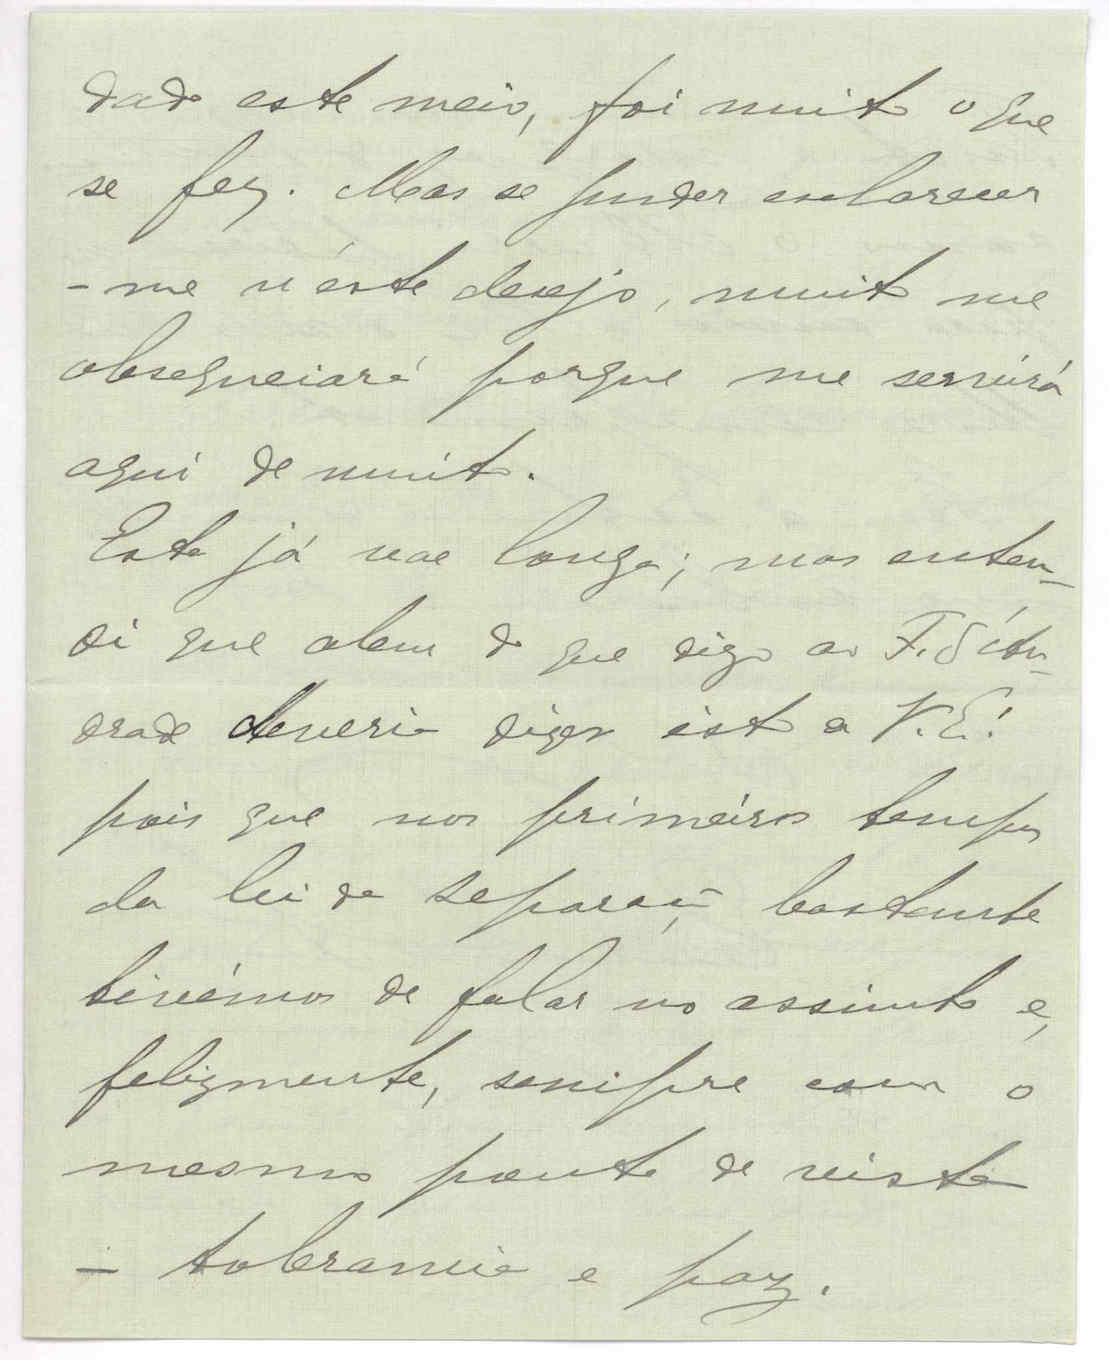 dado este meio, foi muito o que
se fez. Mas se puder esclarecer
-me n'éste desejo, muito me
obsequeiará porque me servirá
aqui de muito.
Esta já vae longa; mas enten-
di que alem do que digo ao F.
drade deveria dizer isto a V. E.!
pois que nos primeiros tempos
da lei da separação bastante
tivémos de falar no assunto e,
felizmente, sempre com o
mesmo ponto de vista
– tolerancia e paz.